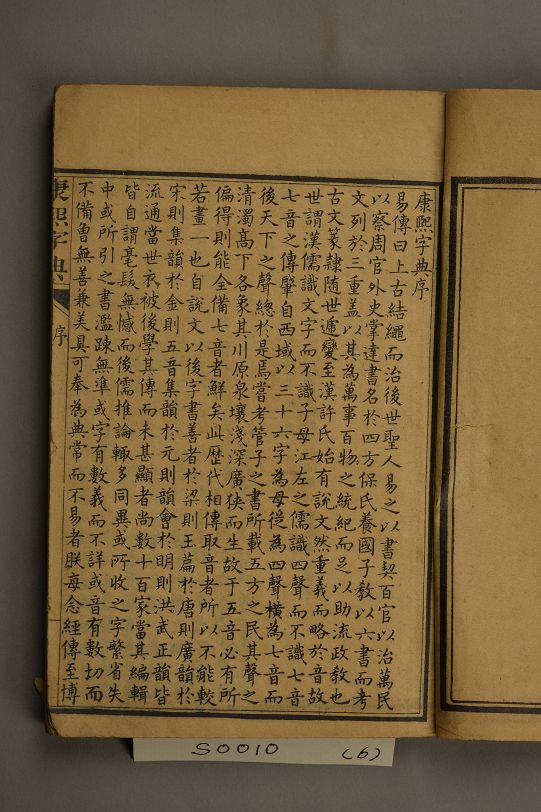 康熙字典序
易傳曰上古結繩而治後世聖人易之以書契百官以治萬民
以察周官外史掌達書名於四方保氏養國子教以六書而考
文列於三重蓋以其為萬事百物之統紀而足以助流政教也
古文篆隸隨世遞變至漢許氏始有說文然重義而略於音故
世謂漢儒識文字而不識子母江左之儒識四聲而不識七音
七音之傳肇自西域以三十六字為母從為四聲橫為七音而
後天下之聲總於是焉嘗考管子之書所載五方之民其聲之
清濁高下各象其川原泉壤淺深廣狹而生故于五音必有所
偏得則能全備七音者鮮矣此歷代相傳取音者所以不能較
若畫一也自說文以後字書善者於梁則玉篇於唐則廣韻於
宋則集韻於金則五音集韻於元則韻會於明則洪武正韻皆
流通當世衣被後學其傳而未甚顯者尚數十百家當其編輯
皆自謂毫髮無憾而後儒推論輒多同異或所收之字繁省失
中或所引之書濫疎無準或字有數義而不詳或音有數切而
不備曾無善兼美具可奉為典常而不易者朕每念經傳至博
康熙字典
序
S0010 (6)